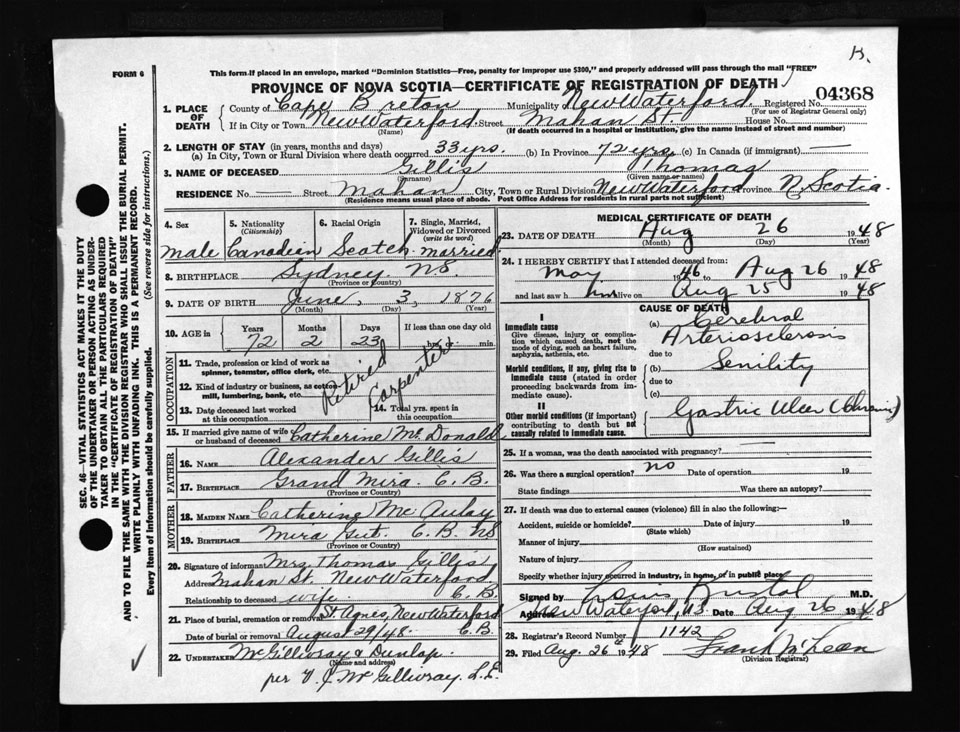 K.
FORM 6
This form if placed in an envelope, marked "Dominion Statistics—Free, penalty for improper use $300," and properly addressed will pass through the mail "FREE"
PROVINCE OF NOVA SCOTIA—CERTIFICATE OF REGISTRATION OF DEATH
04368
1. PLACE OF DEATH
County of Cape Breton Municipality New Waterford Registered No.
(For use of Registrar General only)
If in City or Town New Waterford Street Mahan St House No.
(Name) (If death occurred in a hospital or institution, give the name instead of street and number)
2. LENGTH OF STAY (in years, months and days)
(a) In City, Town or Rural Division where death occurred 33 yrs. (b) In Province 72 yrs (c) In Canada (if immigrant) —
3. NAME OF DECEASED Gillis Thomas
(Surname) (Given name or names)
RESIDENCE No. — Street Mahan City, Town or Rural Division New Waterford Province N. Scotia.
(Residence means usual place of abode. Post Office Address for residents in rural parts not sufficient)
4. Sex 5. Nationality (Citizenship) 6. Racial Origin 7. Single, Married, Widowed or Divorced (write the word)
Male Canadian Scotch married.
8. BIRTHPLACE Sydney NS.
(Province or Country)
9. DATE OF BIRTH June, 3, 1876
(Month) (Day) (Year)
10. AGE in Years Months Days If less than one day old
72 2 23 hrs. or min.
OCCUPATION
11. Trade, profession or kind of work as spinner, teamster, office clerk, etc.
Retired Carpenter
12. Kind of industry or business, as cotton mill, lumbering, bank, etc.
13. Date deceased last worked at this occupation
14. Total yrs. spent in this occupation
15. If married give name of wife or husband of deceased Catherine McDonald
FATHER
16. NAME Alexander Gillis
17. BIRTHPLACE Grand Mira. C.B.
(Province or Country)
MOTHER
18. MAIDEN NAME Catherine McAulay
19. BIRTHPLACE Mira Gut. C.B. NS
(Province or Country)
20. Signature of informant Mrs. Thomas Gillis
Address Mahan St. New Waterford,
Relationship to deceased wife. C.B.
21. Place of burial, cremation or removal St Agnes, New Waterford
Date of burial or removal August 29/48. C.B.
22. UNDERTAKER McGillivray & Dunlap.
(Name and address)
per McGillivray. L.E.
MEDICAL CERTIFICATE OF DEATH
23. DATE OF DEATH Aug 26 1948
(Month) (Day) (Year)
24. I HEREBY CERTIFY that I attended deceased from:
May 1946 to Aug 26 1948
and last saw him alive on Aug 25 1948
CAUSE OF DEATH
I
Immediate cause
Give disease, injury or complication which caused death, not the mode of dying, such as heart failure, asphyxia, asthenia, etc.
(a) Cerebral Arteriosclerosis
due to
Morbid conditions, if any, giving rise to immediate cause (stated in order proceeding backwards from immediate cause).
(b) Senility
due to
(c)
II
Other morbid conditions (if important) contributing to death but not causally related to immediate cause.
Gastric Ulcer (Chronic)
25. If a woman, was the death associated with pregnancy?
26. Was there a surgical operation? no Date of operation 19
State findings Was there an autopsy?
27. If death was due to external causes (violence) fill in also the following:—
Accident, suicide or homicide? Date of injury 19
(State which)
Manner of injury
(How sustained)
Nature of injury
Specify whether injury occurred in industry, in home, or in public place
Signed by Louis Bristol M.D.
Address New Waterford, NS. Date Aug 26 1948
28. Registrar's Record Number 1142
29. Filed Aug. 26th 1948 Frank McLean
(Division Registrar)
SEC. 46—VITAL STATISTICS ACT MAKES IT THE DUTY
OF THE UNDERTAKER OR PERSON ACTING AS UNDER-
TAKER TO OBTAIN ALL THE PARTICULARS REQUIRED
IN THE "CERTIFICATE OF REGISTRATION OF DEATH"
AND TO FILE THE SAME WITH THE DIVISION REGISTRAR WHO SHALL ISSUE THE BURIAL PERMIT.
WRITE PLAINLY WITH UNFADING INK. THIS IS A PERMANENT RECORD.
Every item of information should be carefully supplied. (See reverse side for instructions.)